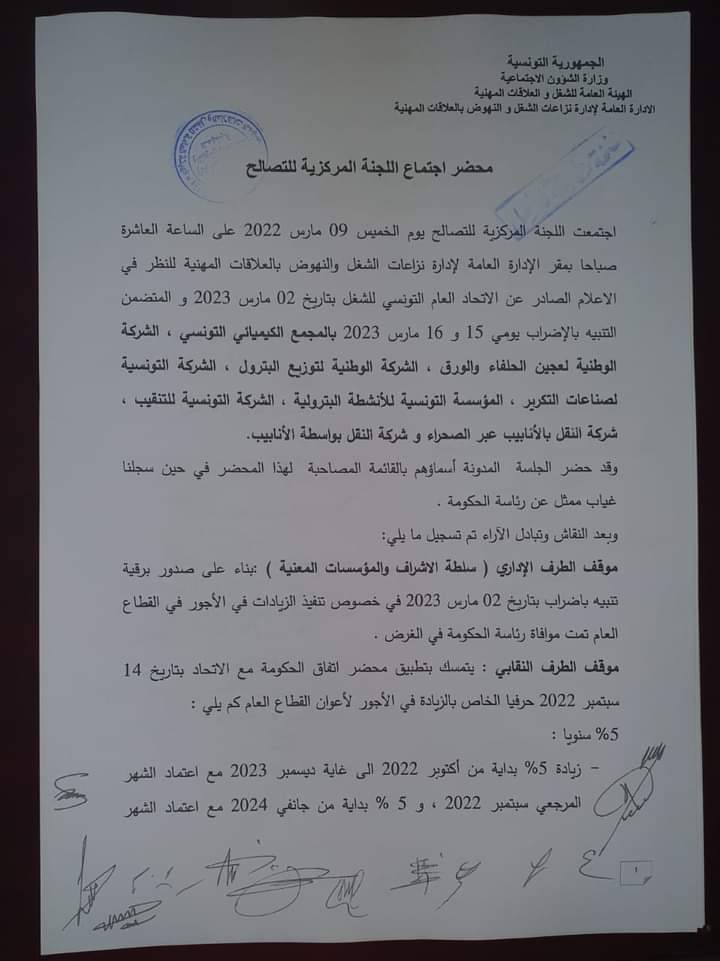 الجمهورية التونسية
وزارة الشؤون الاجتماعية
الهيئة العامة للشغل و العلاقات المهنية
الادارة العامة لإدارة نزاعات الشغل و النهوض بالعلاقات المهنية
محضر اجتماع اللجنة المركزية للتصالح
اجتمعت اللجنة المركزية للتصالح يوم الخميس 09 مارس 2022 على الساعة العاشرة
صباحا بمقر الإدارة العامة لإدارة نزاعات الشغل والنهوض بالعلاقات المهنية للنظر في
الاعلام الصادر عن الاتحاد العام التونسي للشغل بتاريخ 02 مارس 2023 و المتضمن
التنبيه بالإضراب يومي 15 و 16 مارس 2023 بالمجمع الكيميائي التونسي ، الشركة
الوطنية لعجين الحلفاء والورق ، الشركة الوطنية لتوزيع البترول ، الشركة التونسية
لصناعات التكرير ، المؤسسة التونسية للأنشطة البترولية ، الشركة التونسية للتنقيب ،
شركة النقل بالأنابيب عبر الصحراء و شركة النقل بواسطة الأنابيب.
وقد حضر الجلسة المدونة أسماؤهم بالقائمة المصاحبة لهذا المحضر في حين سجلنا
غياب ممثل عن رئاسة الحكومة .
وبعد النقاش وتبادل الآراء تم تسجيل ما يلي:
موقف الطرف الإداري ( سلطة الاشراف والمؤسسات المعنية ) :بناء على صدور برقية
تنبيه باضراب بتاريخ 02 مارس 2023 في خصوص تنفيذ الزيادات في الأجور في القطاع
العام تمت موافاة رئاسة الحكومة في الغرض .
موقف الطرف النقابي : يتمسك بتطبيق محضر اتفاق الحكومة مع الاتحاد بتاريخ 14
سبتمبر 2022 حرفيا الخاص بالزيادة في الأجور لأعوان القطاع العام كم يلي :
5% سنويا :
- زيادة 5% بداية من أكتوبر 2022 الى غاية ديسمبر 2023 مع اعتماد الشهر
المرجعي سبتمبر 2022 ، و 5 % بداية من جانفي 2024 مع اعتماد الشهر